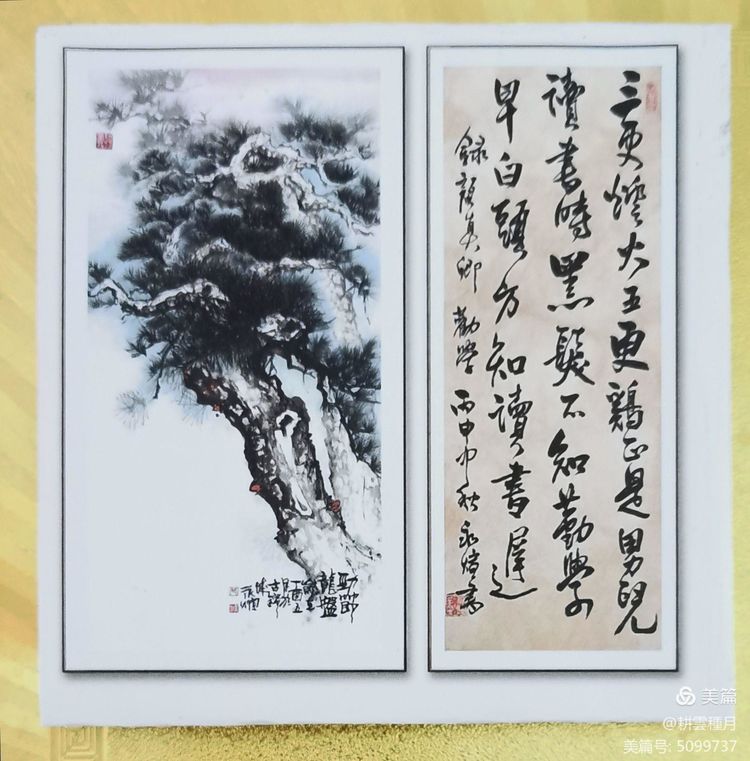 三更燈火五更鷄正是男兒
讀書時黑髮不知勤學
早白頭方知讀書遲
錄顏真卿 勸學 丙申中秋 書
勁節
龍盤
丁酉五
美篇
@耕雲種月
美篇号: 5099737